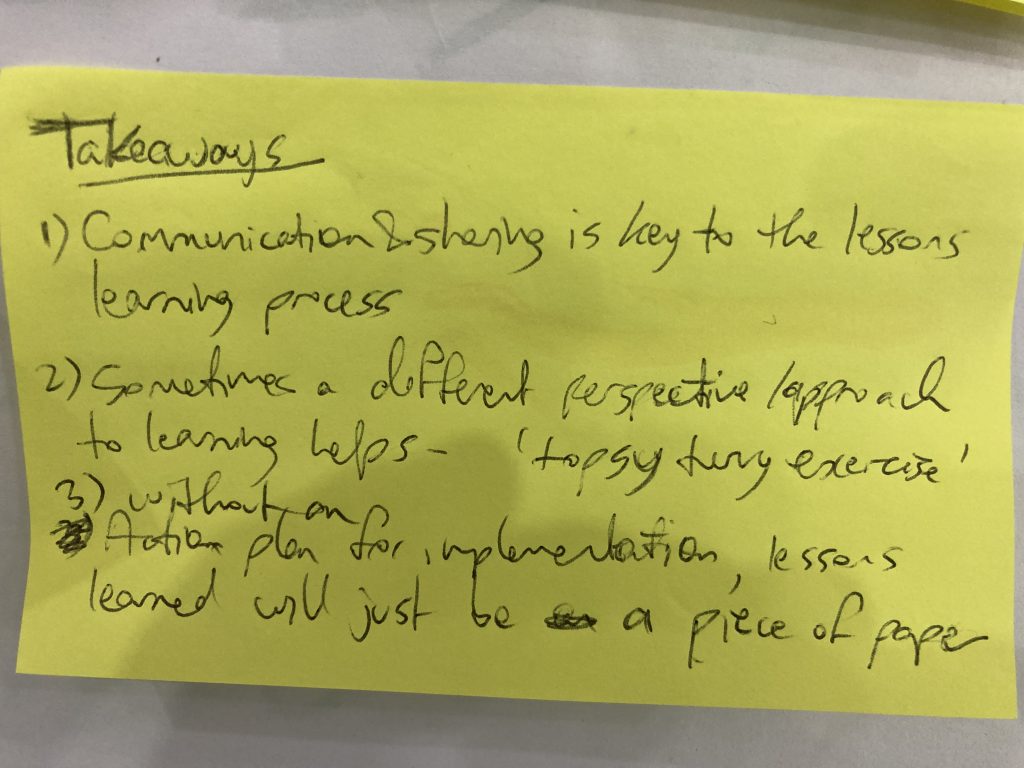 Takeaways
1) Communication & sharing is key to the lessons
learning process
2) Sometimes a different perspective / approach
to learning helps - 'topsy turvy exercise'
3) without an
Action plan for implementation, lessons
learned will just be a piece of paper